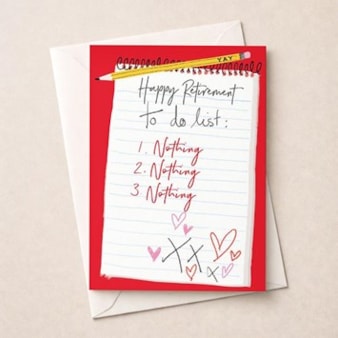 YAY
Happy Retirement
To do list:
1. Nothing
2. Nothing
3 Nothing
X X X